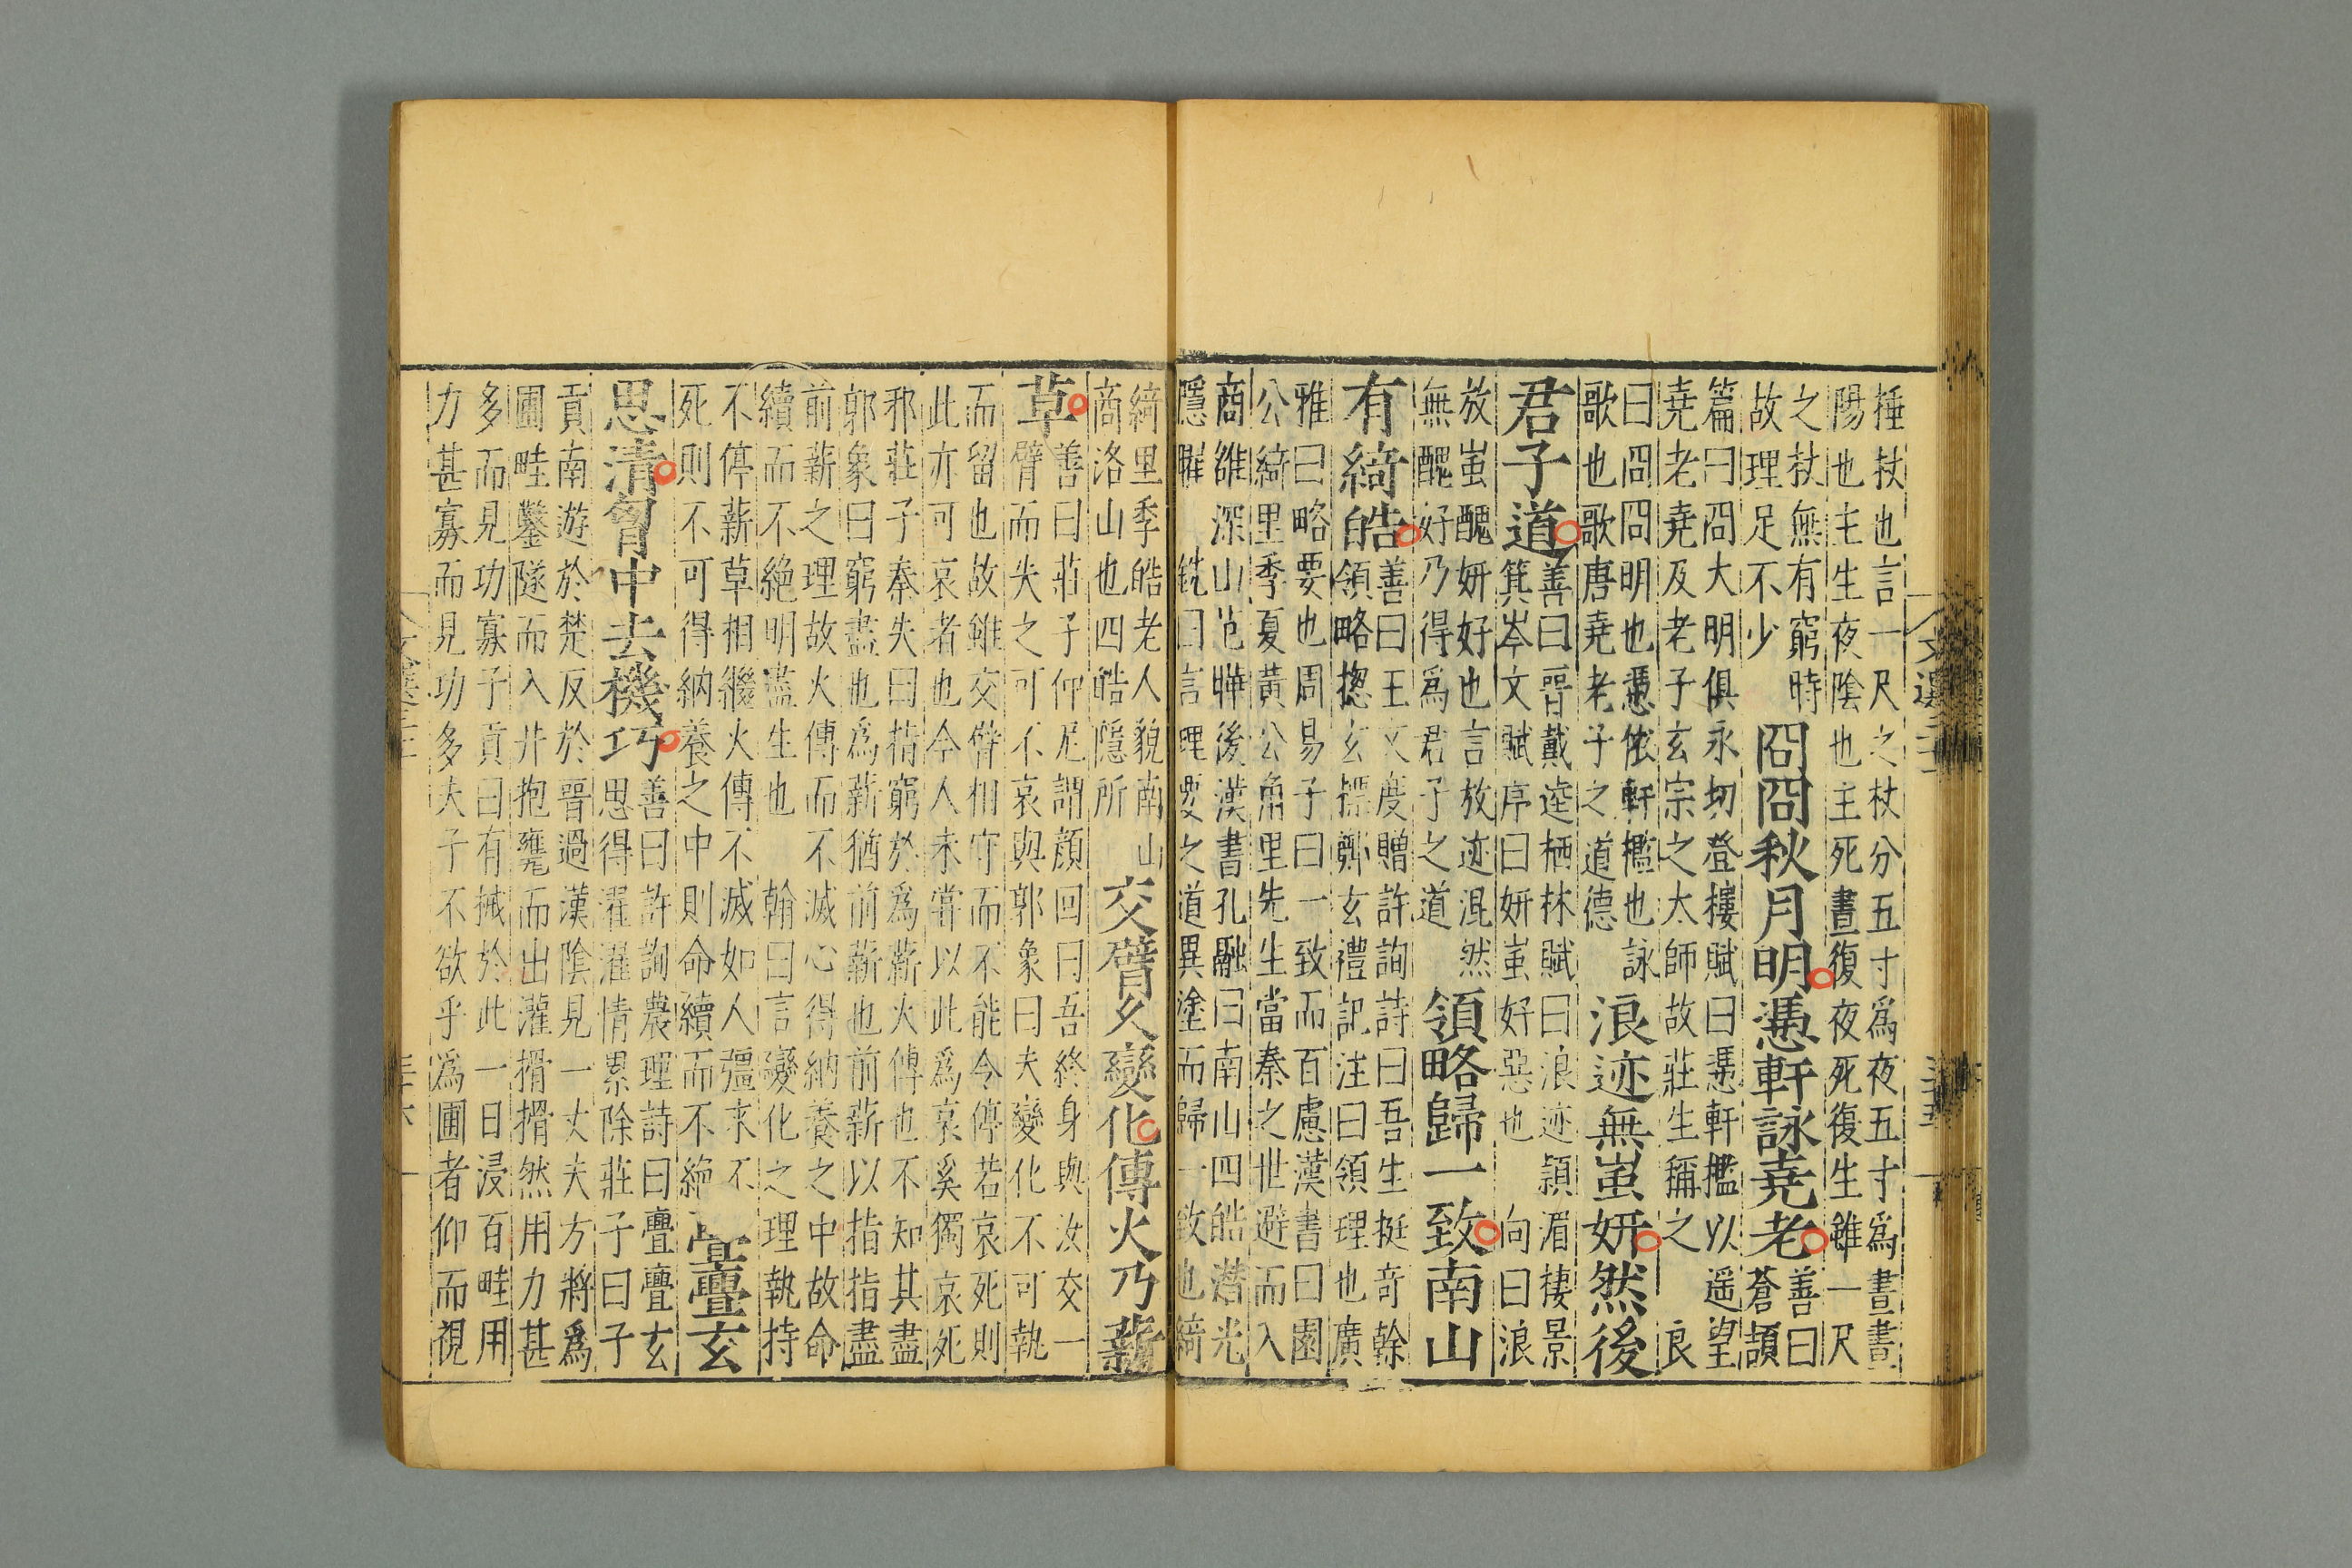 捶杖也言一尺之杖分五寸爲夜五寸爲晝晝
陽也主生夜陰也主死晝復夜死復生雖一尺
之杖無有窮時
故理足不少
冏冏秋月明憑軒詠堯老
善曰
蒼頡
篇曰冏大明俱永切登樓賦曰憑軒檻以遥望
堯老堯及老子老子玄宗之太師故莊生稱之
良
曰冏冏明也憑依軒檻也詠
歌也歌唐堯老子之道德
浪迹無蚩妍然後
君子道
善曰晉戴逵栖林賦曰浪迹潁湄棲景
箕岑文賦序曰妍蚩好惡也
向曰浪
放蚩醜妍好也言放迹混然
無醜好乃得爲君子之道
領略歸一致南山
有綺皓
善曰王文度贈許詢詩曰吾生挺奇幹
領略揔玄標鄭玄禮記注曰領理也廣
雅曰略要也周易子曰一致而百慮漢書曰園
公綺里季夏黃公甪里先生當秦之世避而入
商雒深山范曄後漢書孔融曰南山四皓潛光
隱耀
銑曰言理要之道異塗而歸一致也綺
綺里季皓老人貌南山
商洛山也四皓隱所
交臂久變化傳火乃薪
草
善曰莊子仲尼謂顏回曰吾終身與汝交一
臂而失之可不哀與郭象曰夫變化不可執
而留也故雖交臂相守而不能令停若哀死則
此亦可哀者也今人未嘗以此爲哀奚獨哀死
邪莊子秦失曰指窮於爲薪火傳也不知其盡
郭象曰窮盡也爲薪猶前薪也前薪以指指盡
前薪之理故火傳而不滅心得納養之中故命
續而不絕明盡生也
翰曰言變化之理執持
不停薪草相繼火傳不滅如人彊來不
死則不可得納養之中則命續而不絕
亹亹玄
思清胷中去機巧
善曰許詢農理詩曰亹亹玄
思得濯濯情累除莊子曰子
貢南遊於楚反於晉過漢陰見一丈夫方將爲
圃畦鑿隧而入井抱甕而出灌搰搰然用力甚
多而見功寡子貢曰有械於此一日浸百畦用
力甚寡而見功多夫子不欲乎爲圃者仰而視